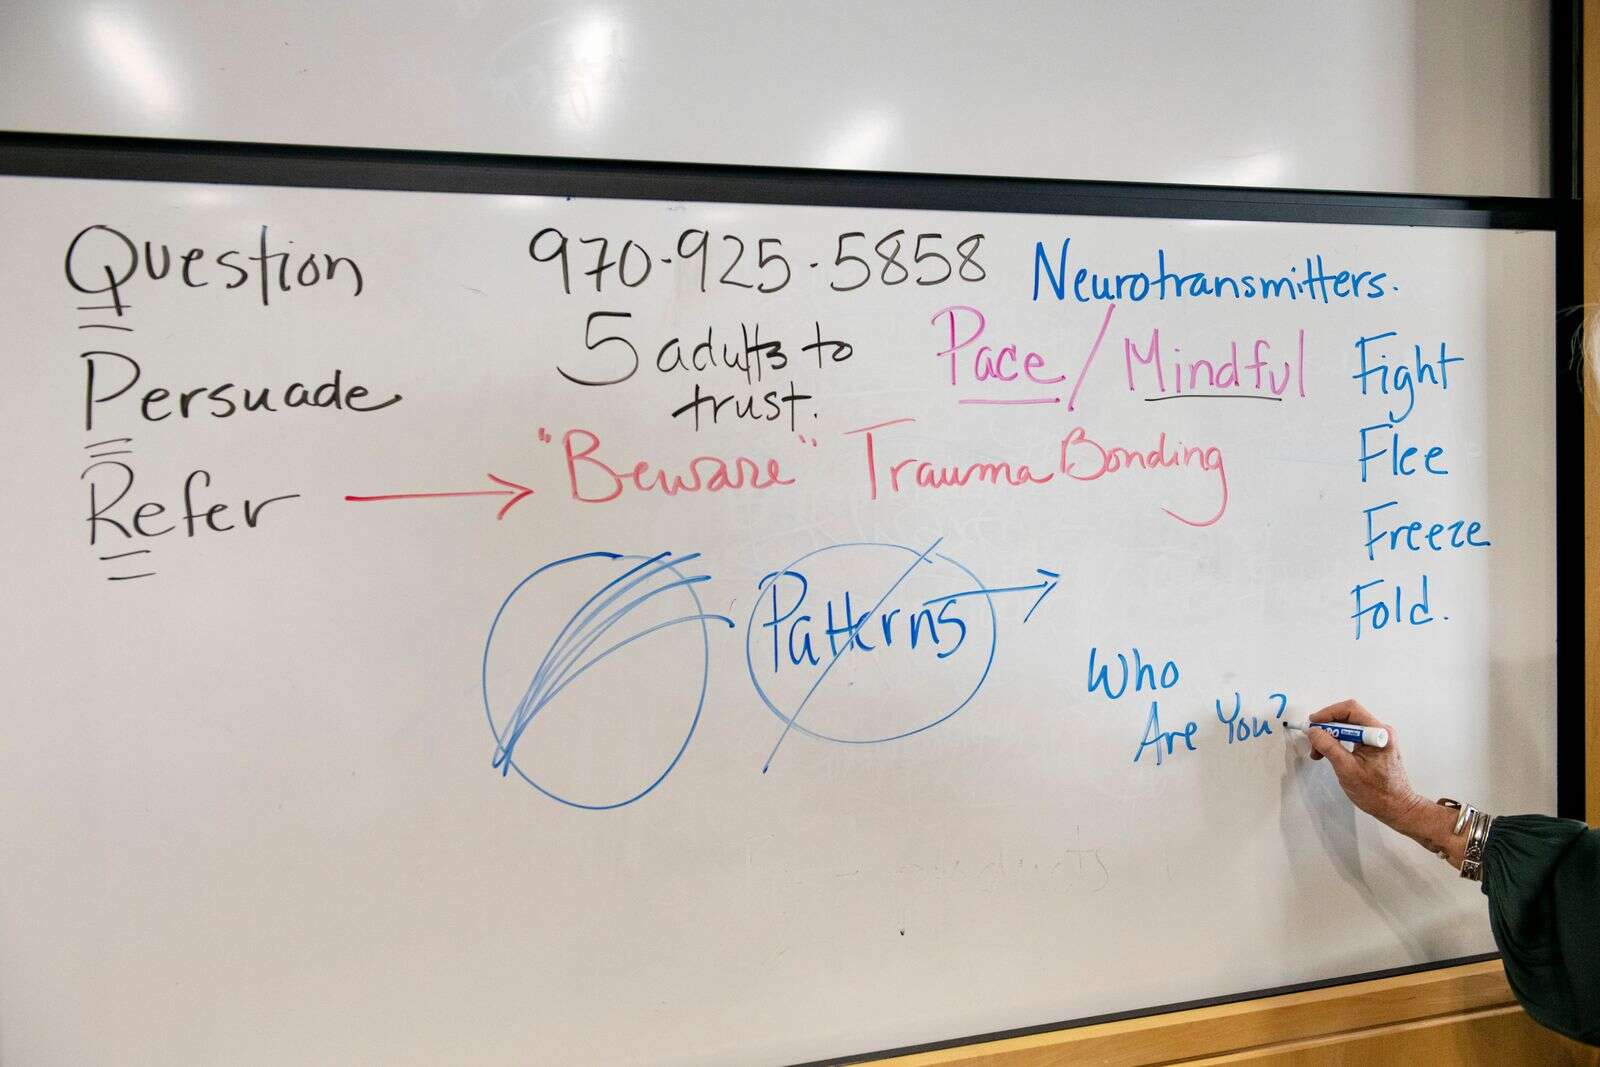 Question
Persuade
Refer
970-925-5858
5 adults to
trust.
"Beware" Trauma Bonding
Patterns
Neurotransmitters.
Pace/Mindful
Fight
Flee
Freeze
Fold.
Who
Are You?